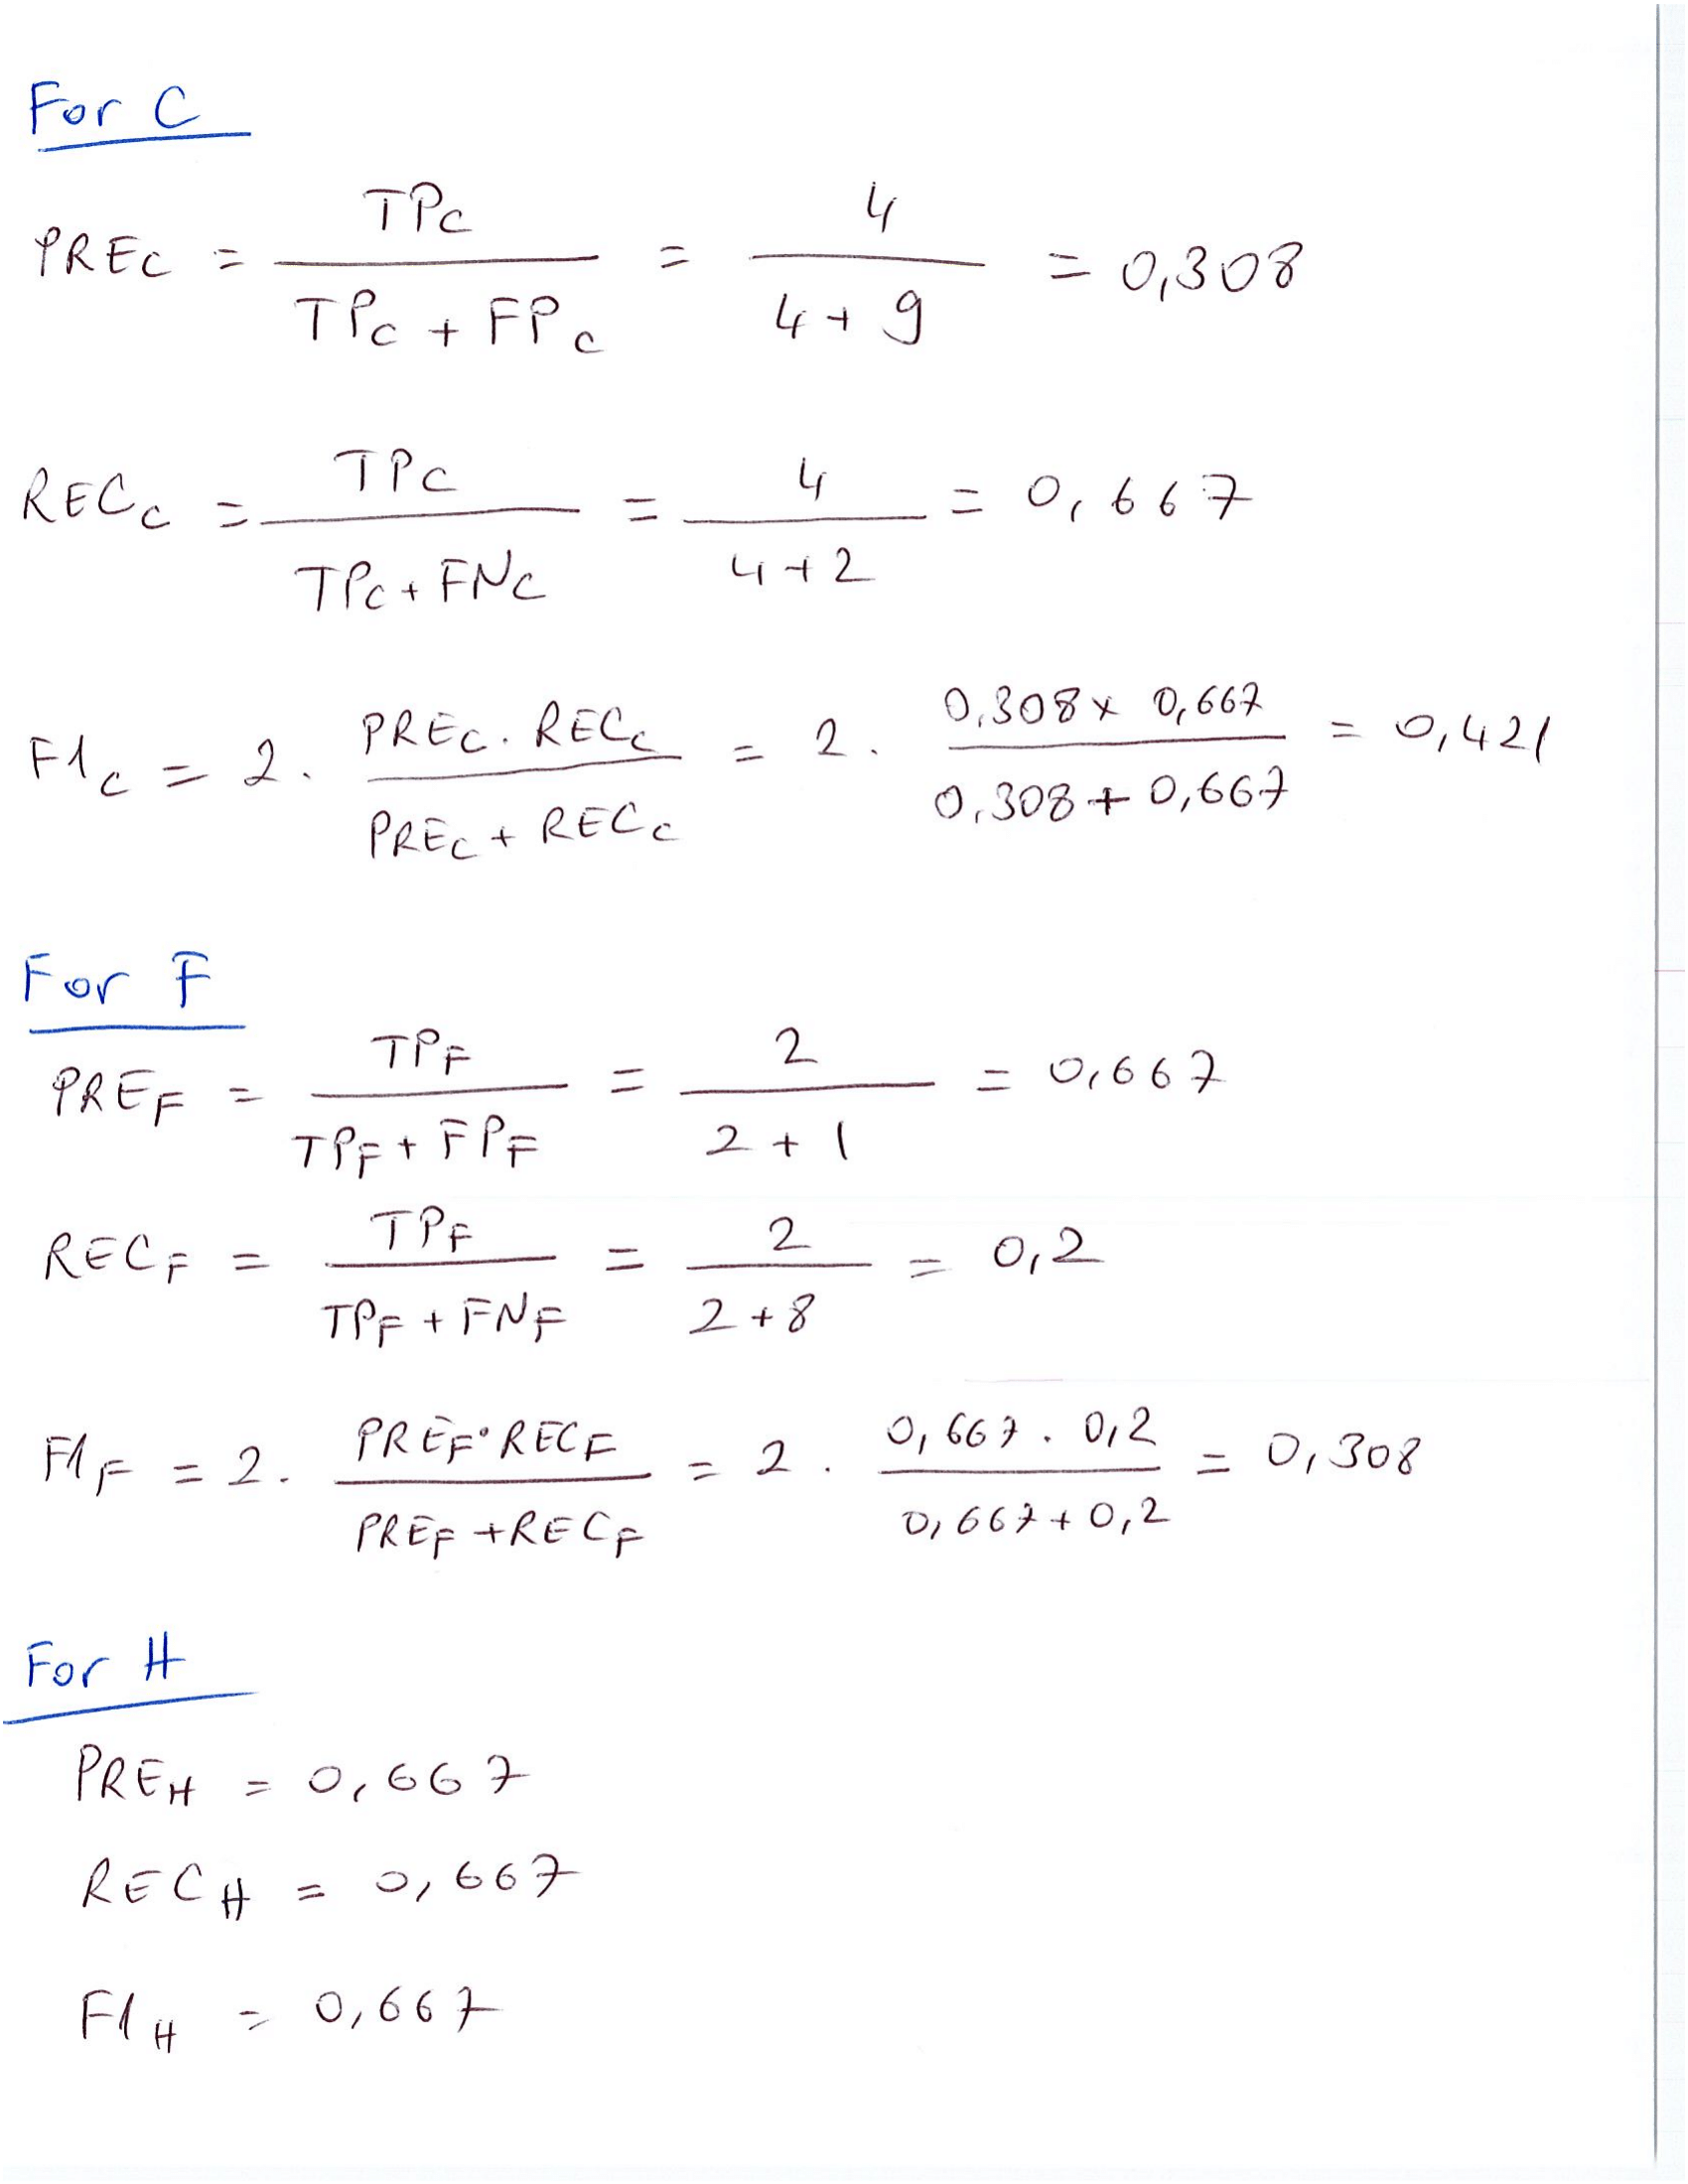 For C
PRE_C = TP_C / (TP_C + FP_C) = 4 / (4 + 9) = 0,308
REC_C = TP_C / (TP_C + FN_C) = 4 / (4 + 2) = 0,667
F1_C = 2 . (PRE_C . REC_C) / (PRE_C + REC_C) = 2 . (0,308 x 0,667) / (0,308 + 0,667) = 0,421
For F
PRE_F = TP_F / (TP_F + FP_F) = 2 / (2 + 1) = 0,667
REC_F = TP_F / (TP_F + FN_F) = 2 / (2 + 8) = 0,2
F1_F = 2 . (PRE_F . REC_F) / (PRE_F + REC_F) = 2 . (0,667 . 0,2) / (0,667 + 0,2) = 0,308
For H
PRE_H = 0,667
REC_H = 0,667
F1_H = 0,667